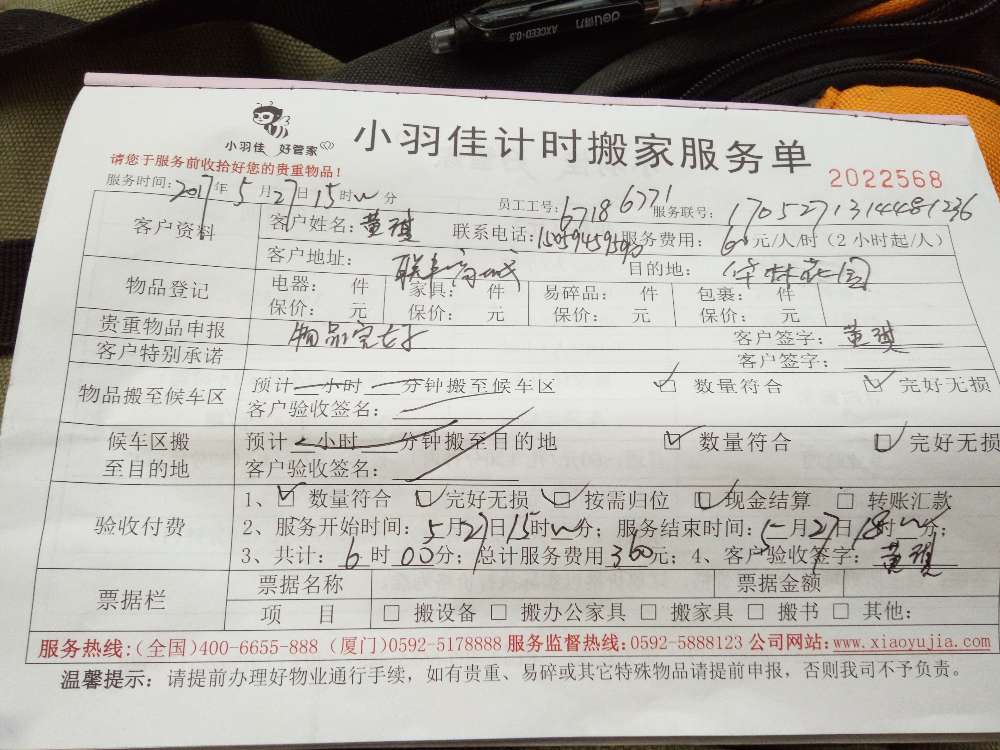 deli 得力 AXCEED-0.5
小羽佳 好管家
小羽佳计时搬家服务单
请您于服务前收拾好您的贵重物品！
2022568
服务时间：2017年5月27日15时 分
员工工号：6718 6771 服务联号：170527131448 1236
客户资料
客户姓名：黄琪 联系电话：15059459590 服务费用：60元/人/时（2小时起/人）
客户地址：联丰商城 目的地：华林花园
物品登记
电器： 件 家具： 件 易碎品： 件 包裹： 件
保价： 元 保价： 元 保价： 元 保价： 元
贵重物品申报 物品完好 客户签字：黄琪
客户特别承诺 客户签字：
物品搬至候车区
预计 小时 分钟搬至候车区 数量符合 完好无损
客户验收签名：
候车区搬至目的地
预计 小时 分钟搬至目的地 数量符合 完好无损
客户验收签名：
验收付费
1、数量符合 完好无损 按需归位 现金结算 转账汇款
2、服务开始时间：5月27日15时 分；服务结束时间：5月27日18时 分；
3、共计：6时00分；总计服务费用360元；4、客户验收签字：黄琪
票据栏
票据名称 票据金额
项 目 搬设备 搬办公家具 搬家具 搬书 其他：
服务热线：（全国）400-6655-888（厦门）0592-5178888 服务监督热线：0592-5888123 公司网站：www.xiaoyujia.com
温馨提示：请提前办理好物业通行手续，如有贵重、易碎或其它特殊物品请提前申报，否则我司不予负责。